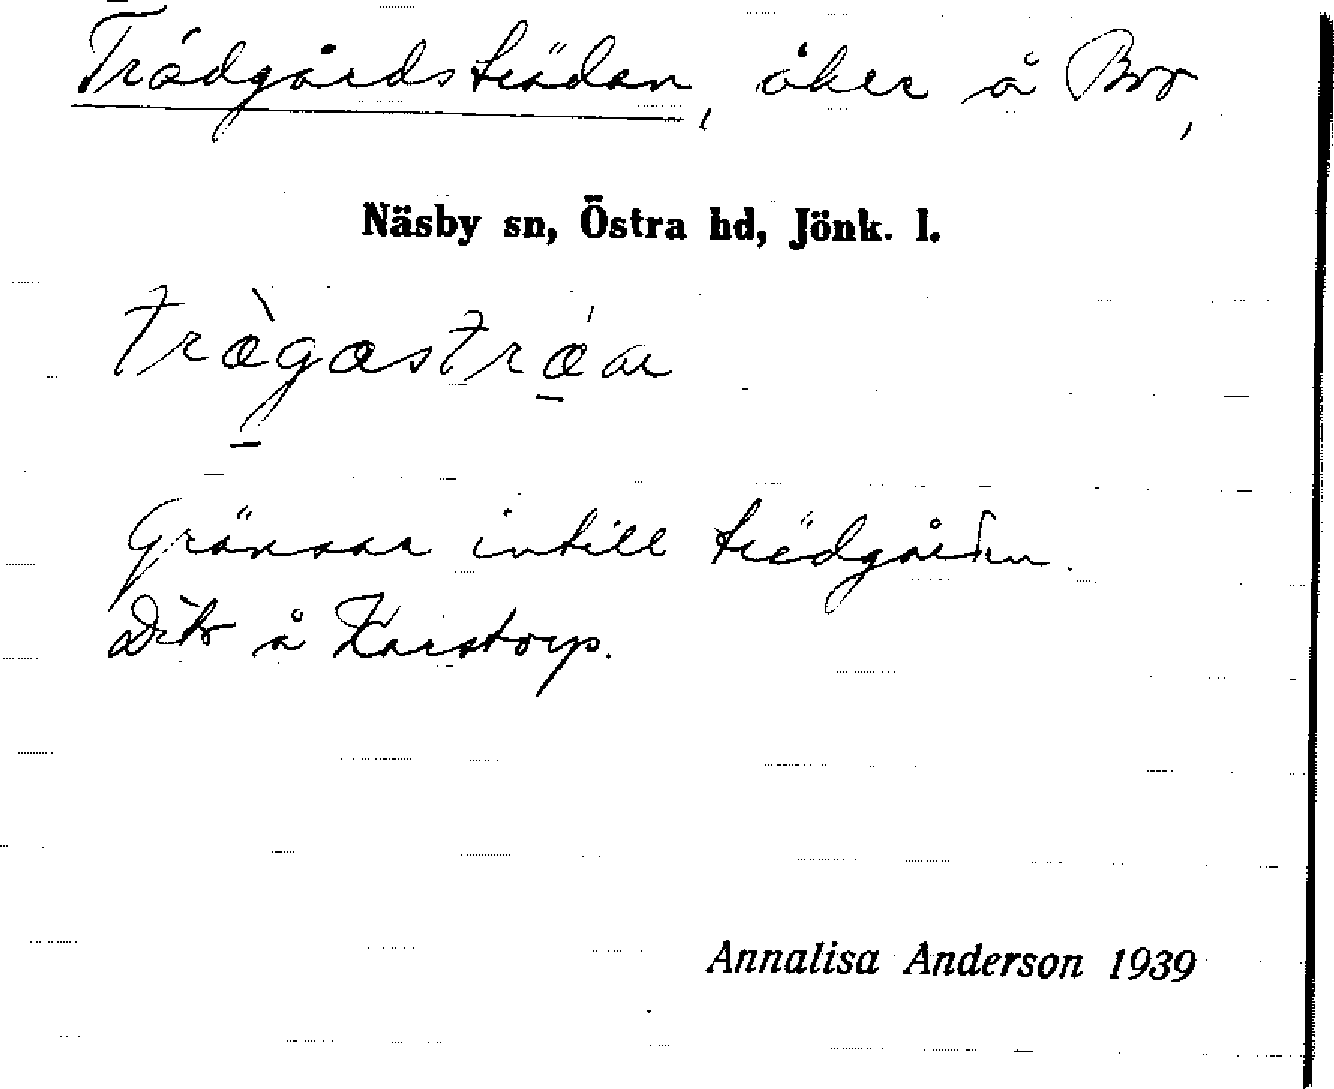 Trädgårdsträdan, åker å Bro,
Näsby sn, Östra hd, Jönk. l.
træ̀gastrǽar
Gränsar intill trädgården.
Dito å Karstorp.
Annalisa Anderson 1939